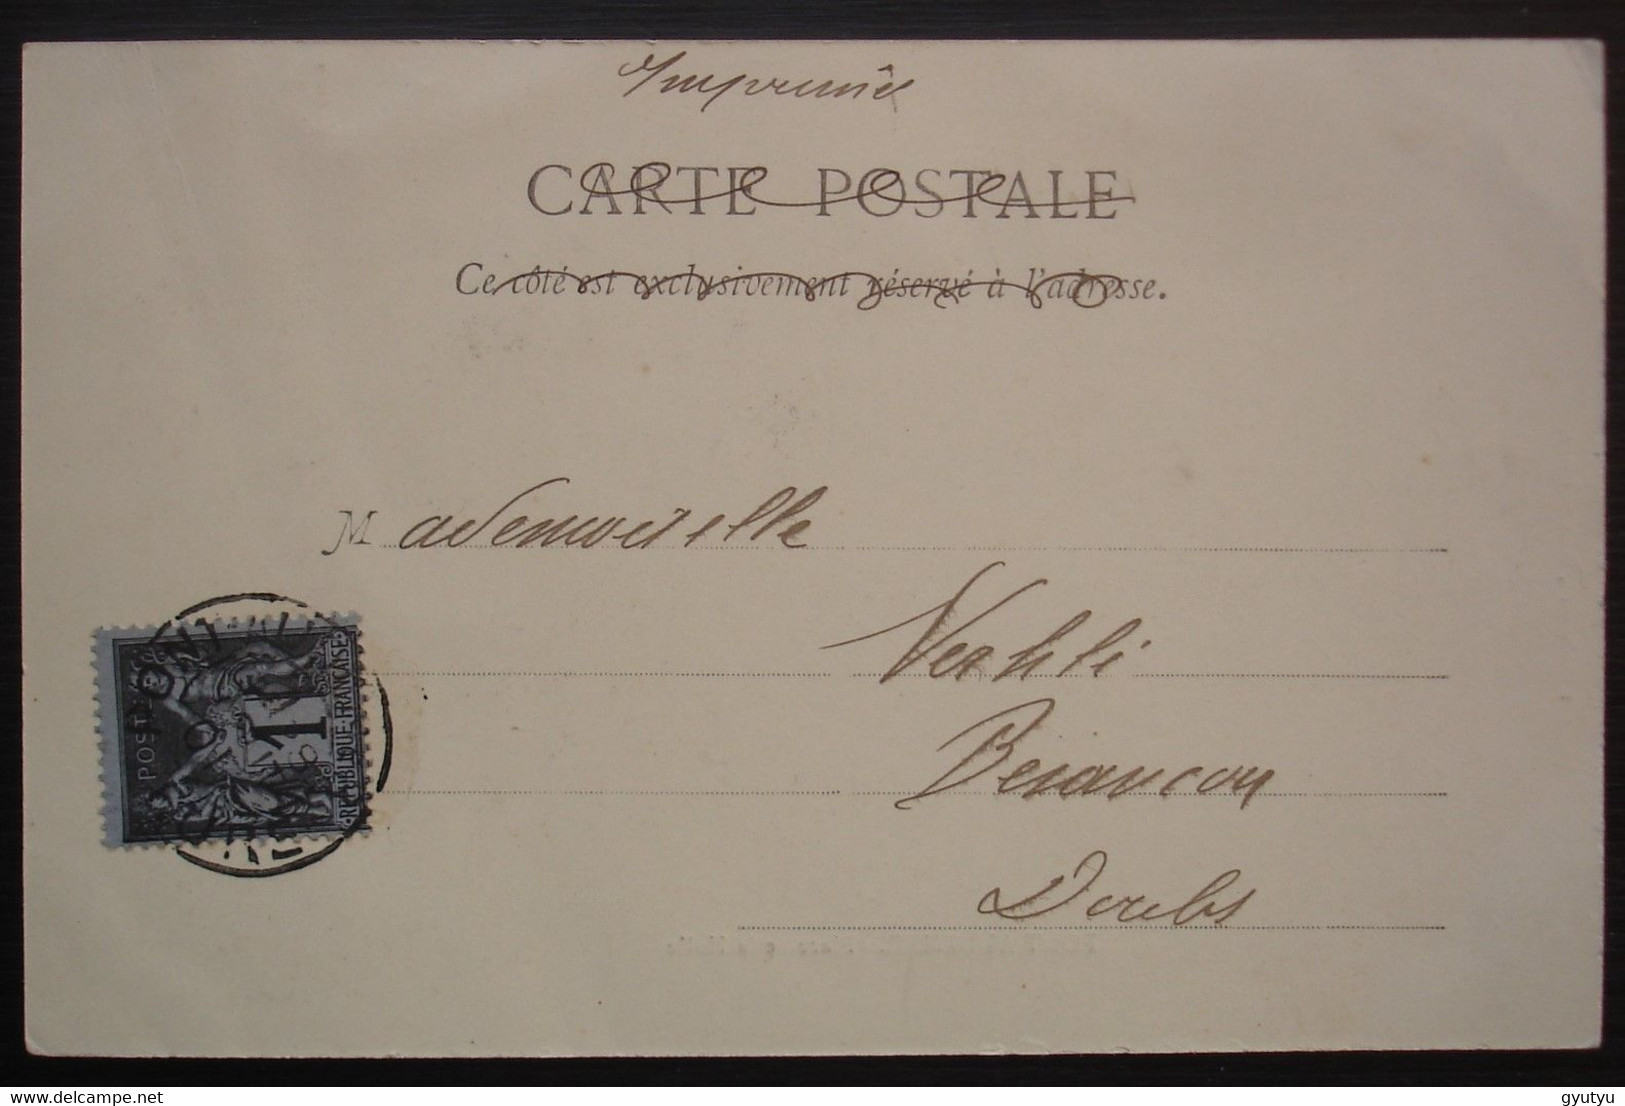 Imprimés
CARTE POSTALE
Ce côté est exclusivement réservé à l'adresse.
Mademoiselle
Besancon
Doubs
POSTES
1
REPUBLIQUE·FRANÇAISE
delcampe.net
gyutyu